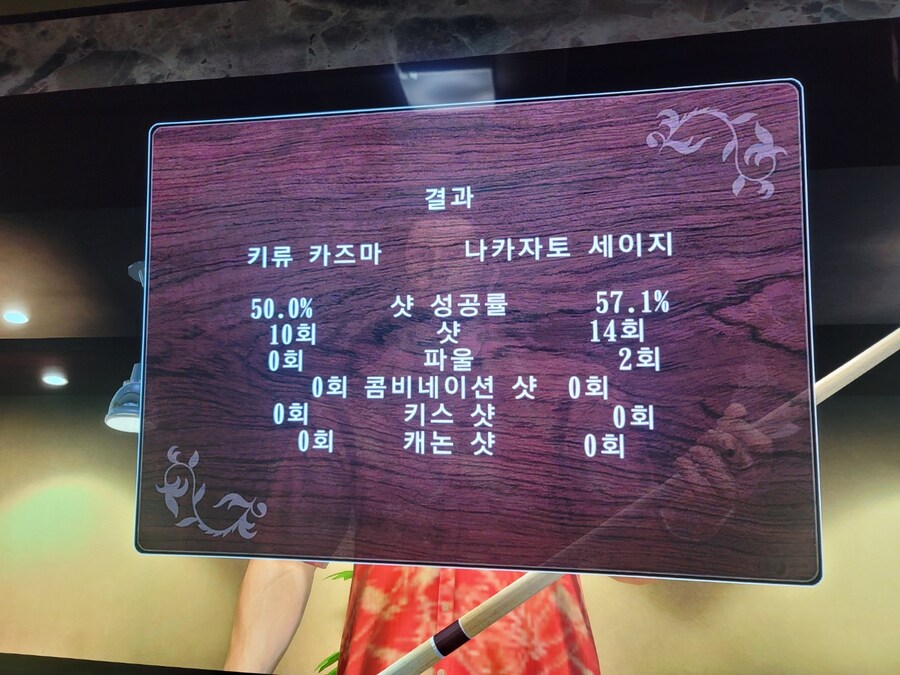 결과
키류 카즈마 나카자토 세이지
50.0% 샷 성공률 57.1%
10회 샷 14회
0회 파울 2회
0회 콤비네이션 샷 0회
0회 키스 샷 0회
0회 캐논 샷 0회